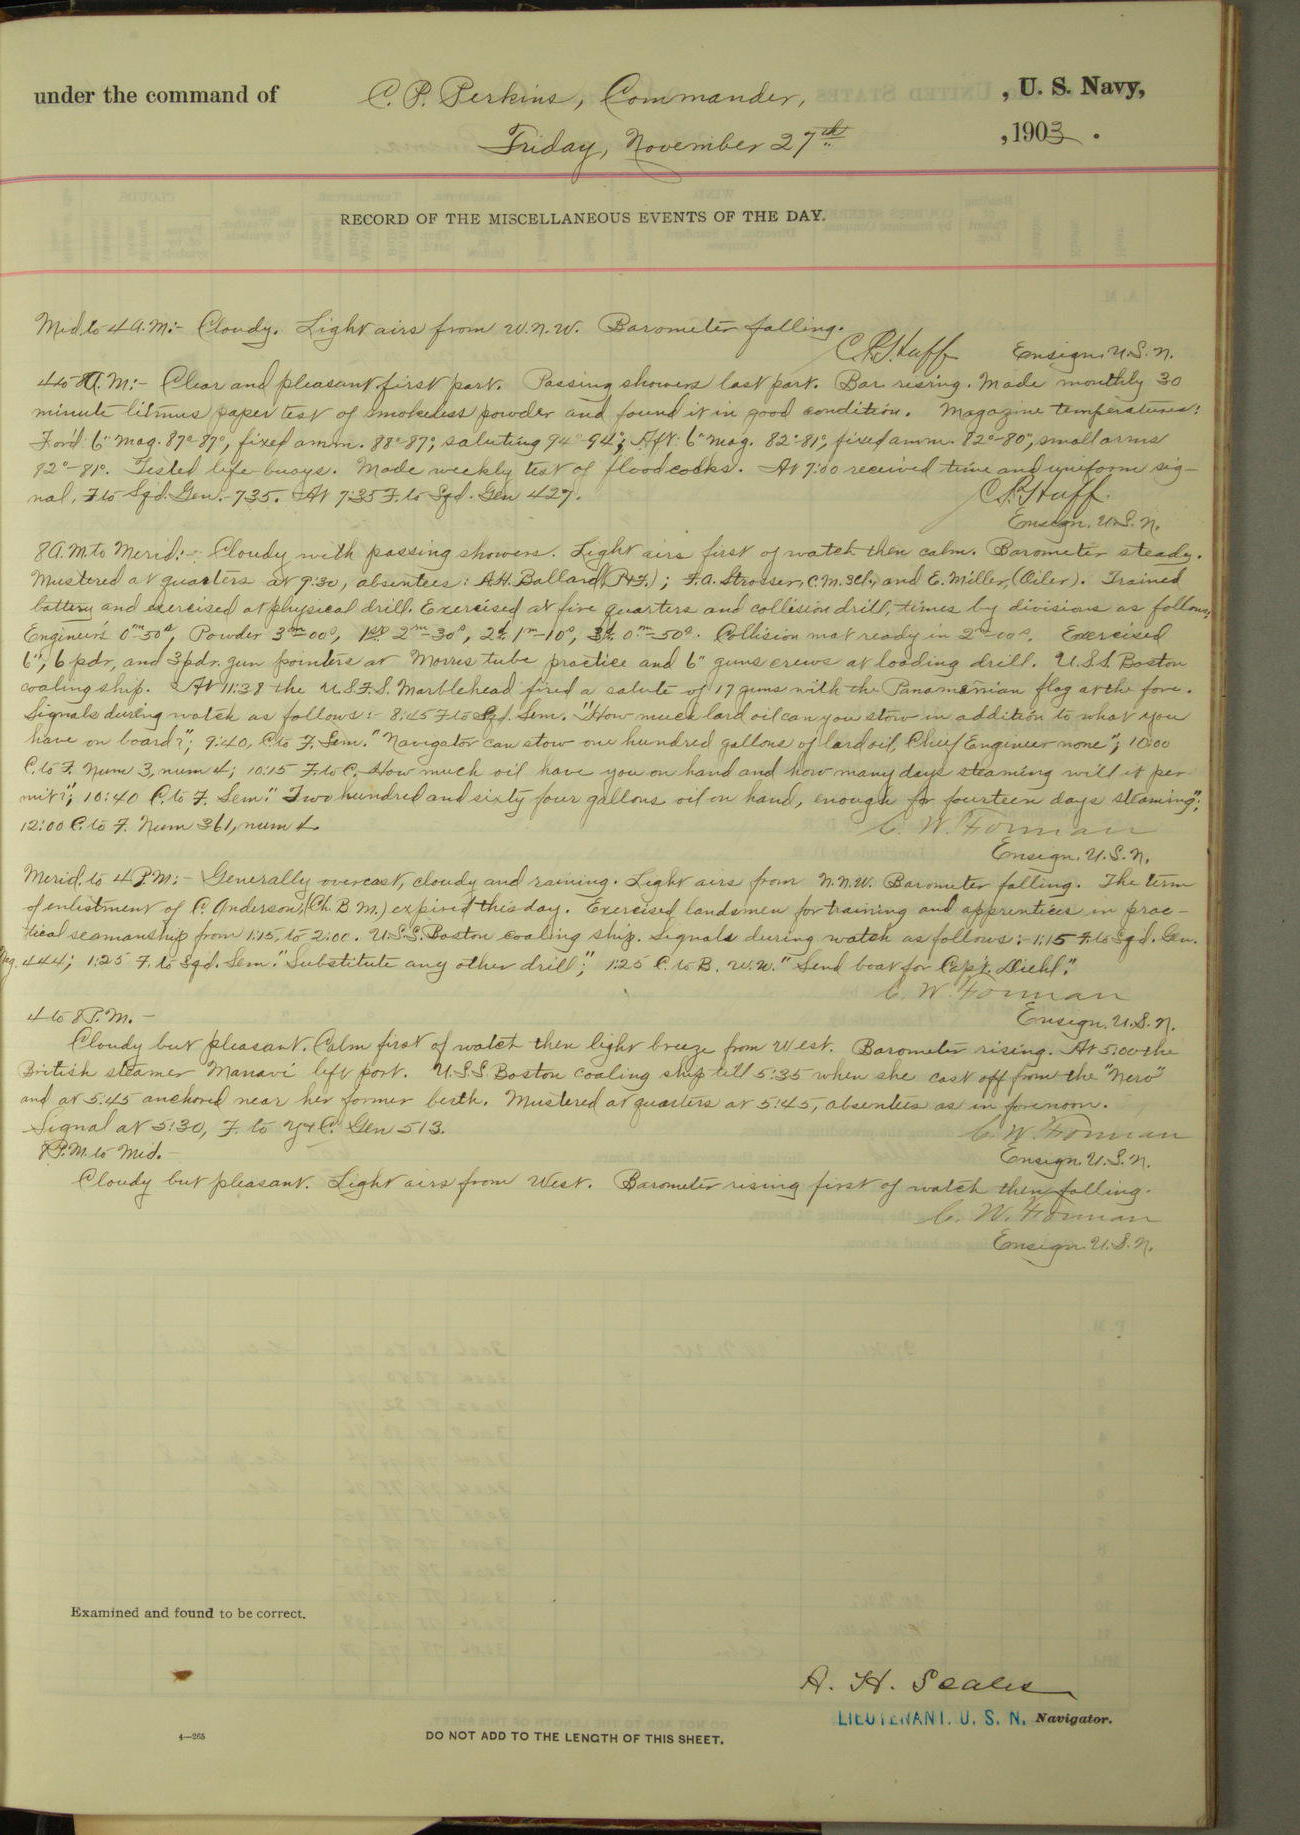 under the command of C. P. Perkins, Commander, , U. S. Navy,
Friday, November 27th , 1903 .
RECORD OF THE MISCELLANEOUS EVENTS OF THE DAY.
Mid. to 4 A.M:- Cloudy. Light airs from W.N.W. Barometer falling.
Huff Ensign, U.S.N.
4 to 8 A.M:- Clear and pleasant first part. Passing showers last part. Bar. rising. Made monthly 30
minute litmus paper test of smokeless powder and found it in good condition. Magazine temperatures:
For'd 6" mag. 87°-87°, fixed amm. 88°-87°, saluting 94°-94°; Aft 6" mag. 82°-81°, fixed amm. 82°-80°, small arms
82°-81°. Tested life buoys. Made weekly test of flood cocks. At 7:00 received time and uniform sig-
nal, F to Sqd. Gen.-735. At 7:35 F. to Sqd. Gen 427.
Huff
Ensign, U.S.N.
8 A.M to Merid:- Cloudy with passing showers. Light airs first of watch then calm. Barometer steady.
Mustered at quarters at 9:30, absentees: A.H. Ballard (P4F.); F.A. Strosser, C.M. 3Cl., and E. Miller, (Oiler). Trained
battery and exercised at physical drill. Exercised at fire quarters and collision drill, times by divisions as follows,
Engineer's 0m-50s, Powder 3m-00s, 1st 2m-30s, 2d 1m-10s, 3d 0m-50s. Collision mat ready in 2m-00s. Exercised
6", 6 pdr, and 3 pdr. gun pointers at Morris tube practice and 6" guns crews at loading drill. U.S.S. Boston
coaling ship. At 11:38 the U.S.F.S. Marblehead fired a salute of 17 guns with the Panamanian flag at the fore.
Signals during watch as follows:- 8:45 F to Sqd. Sem. "How much lard oil can you stow in addition to what you
have on board?"; 9:40, C. to F. Sem. "Navigator can stow one hundred gallons of lard oil, Chief Engineer none"; 10:00
C. to F. Num 3, num 4; 10:15 F. to C. How much oil have you on hand and how many days steaming will it per-
mit?"; 10:40 C. to F. Sem. "Two hundred and sixty four gallons oil on hand, enough for fourteen days steaming";
12:00 C. to F. Num 361, num
C. W. Forman
Ensign, U.S.N.
Merid. to 4 P.M:- Generally overcast, cloudy and raining. Light airs from N.N.W. Barometer falling. The term
of enlistment of C. Anderson, (Ch. B. M.) expired this day. Exercised landsmen for training and apprentices in prac-
tical seamanship from 1:15, to 2:00. U.S.S. Boston coaling ship. Signals during watch as follows:- 1:15 F. to Sqd. Gen.
444; 1:25 F. to Sqd. Sem. "Substitute any other drill;" 1:25 C. to B. W.W. "Send boat for Capt. Diehl."
C. W. Forman
4 to 8 P.M. - Ensign, U.S.N.
Cloudy but pleasant. Calm first of watch then light breeze from West. Barometer rising. At 5:00 the
British steamer "Manavi" left port. U.S.S Boston coaling ship till 5:35 when she cast off from the "Nero"
and at 5:45 anchored near her former berth. Mustered at quarters at 5:45, absentees as in forenoon.
Signal at 5:30, F. to Y & C. Gen 513. C. W. Forman
8 P.M. to Mid. - Ensign, U.S.N.
Cloudy but pleasant. Light airs from West. Barometer rising first of watch then falling.
C. W. Forman
Ensign, U.S.N.
Examined and found to be correct.
A. H. Scales
LIEUTENANT. U. S. N. Navigator.
4—265
DO NOT ADD TO THE LENGTH OF THIS SHEET.